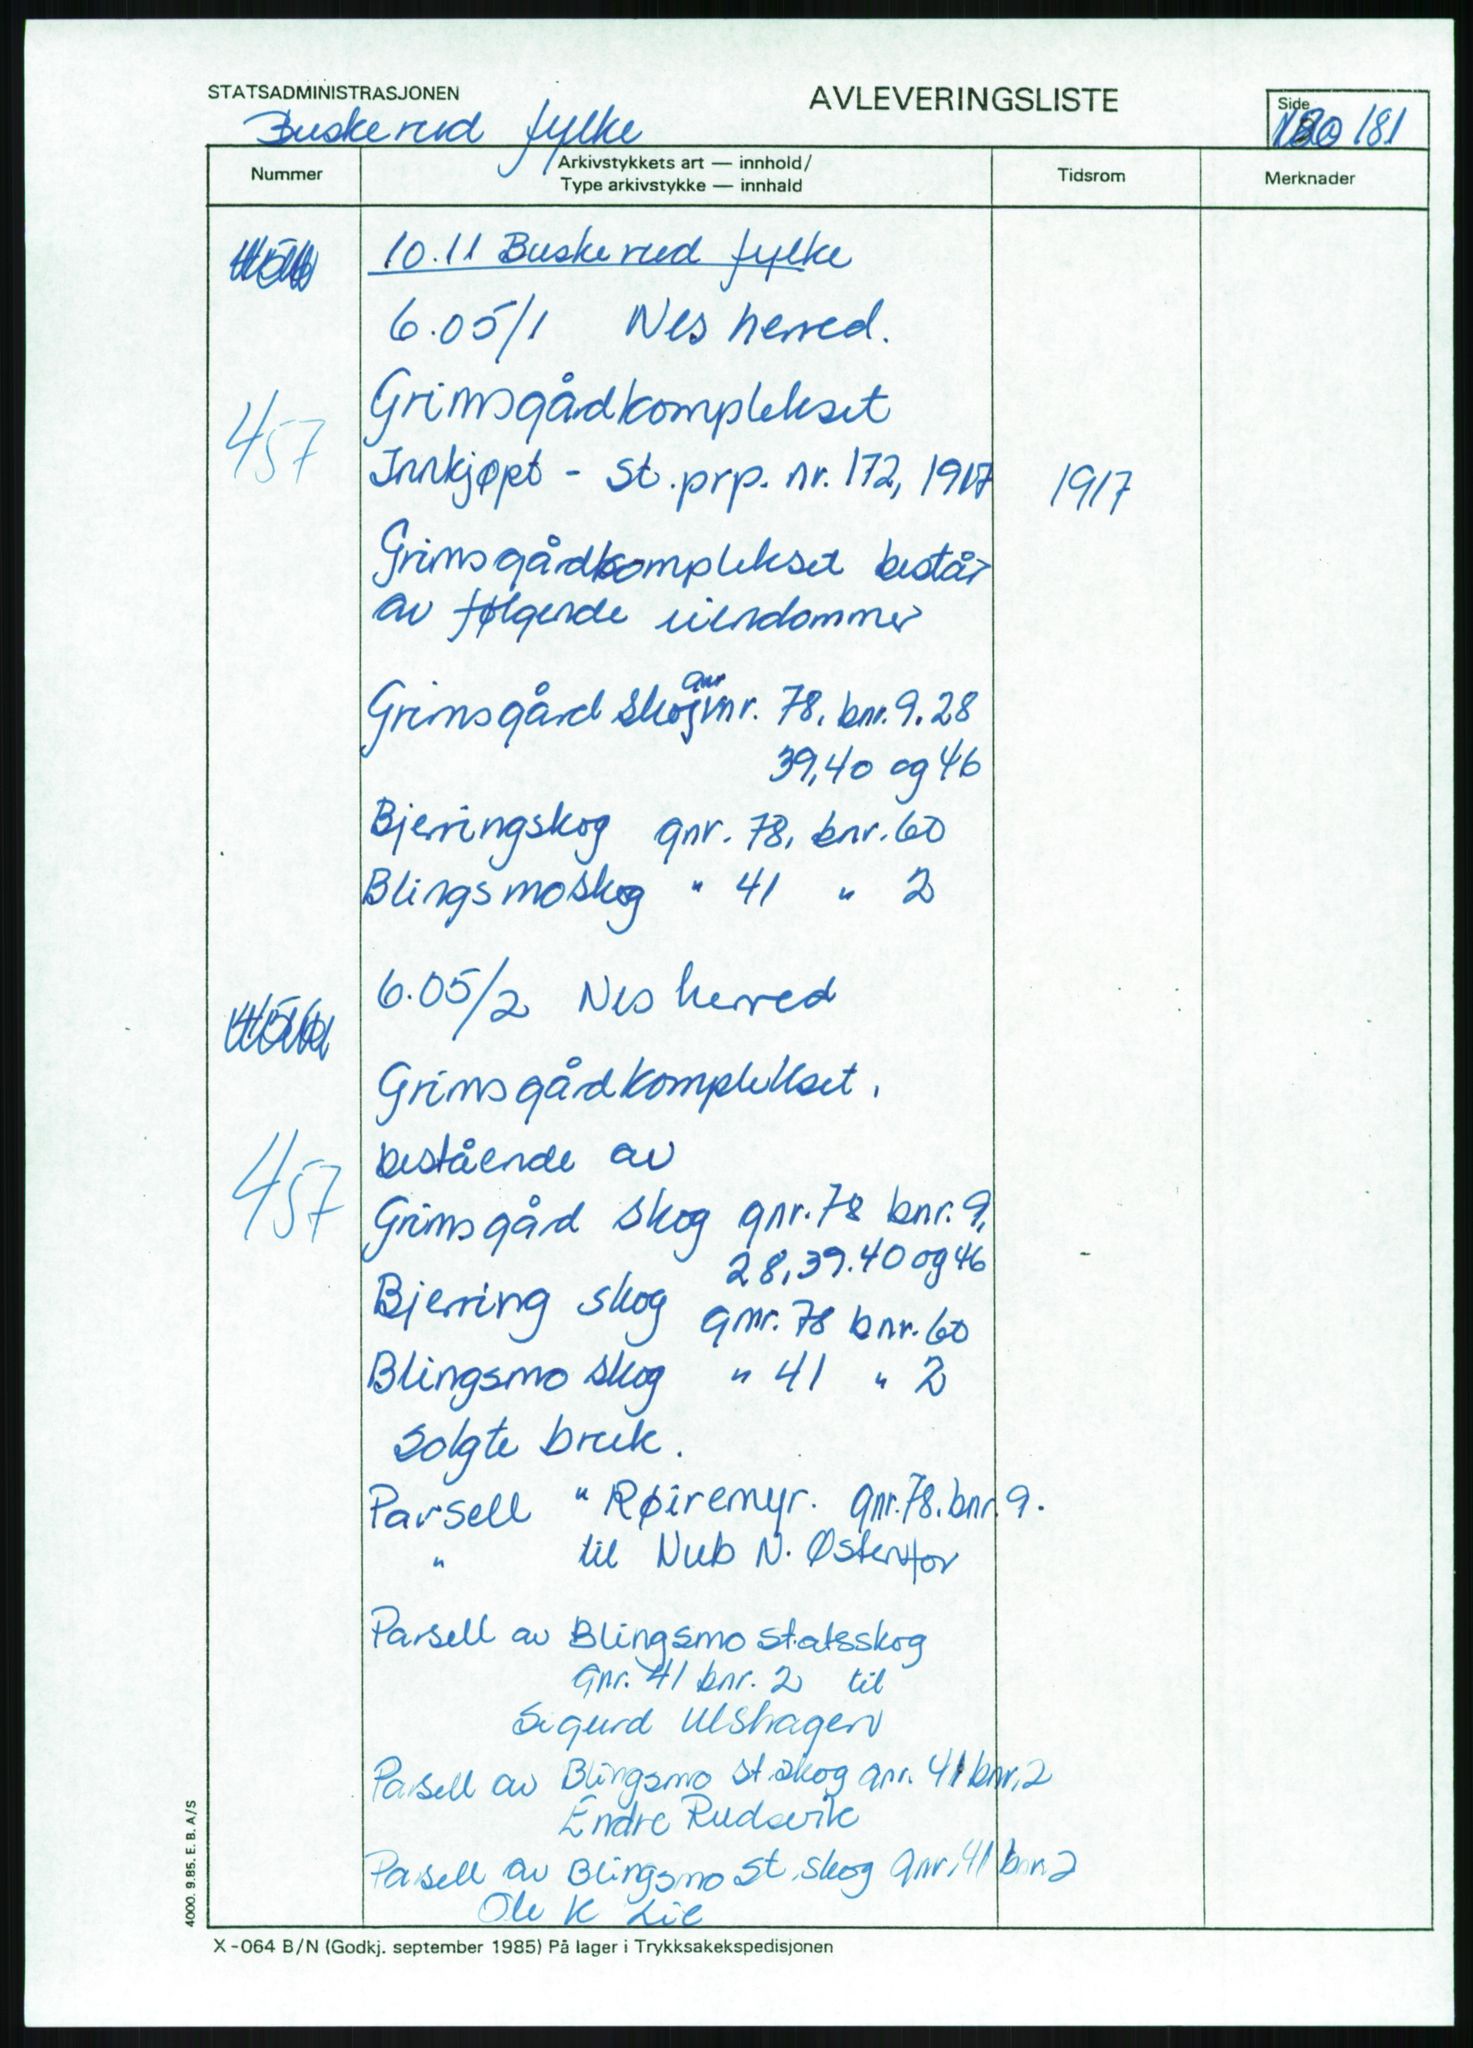 STATSADMINISTRASJONEN
AVLEVERINGSLISTE
Side
181
Buskerud fylke
Nummer
Arkivstykkets art — innhold/
Type arkivstykke — innhald
Tidsrom
Merknader
10.11 Buskerud fylke
6.05/1 Nes herred.
Grimsgårdkomplekset
457
Innkjøpt - St.prp. nr. 172, 1917 1917
Grimsgårdkomplekset består
av følgende eiendommer
gnr
Grimsgård skog nr. 78, bnr. 9.28
39,40 og 46
Bjerringskog gnr. 78, bnr. 60
Blingsmoskog " 41 " 2
6.05/2 Nes herred
Grimsgårdkomplekset,
bestående av
457
Grimsgård skog gnr. 78 bnr. 9,
28,39.40 og 46
Bjerring skog gnr. 78 bnr. 60
Blingsmo skog " 41 " 2
Solgte bruk.
Parsell " Røiremyr. gnr. 78. bnr. 9.
" til Nub N. Østenfor
Parsell av Blingsmo statsskog
gnr. 41 bnr. 2 til
Sigurd Ulshagen
Parsell av Blingsmo st.skog gnr. 41 bnr. 2
Endre Rudsvik
Parsell av Blingsmo st.skog gnr. 41 bnr 2
Ole K Lie
4000. 9.85. E. B. A/S
X-064 B/N (Godkj. september 1985) På lager i Trykksakekspedisjonen